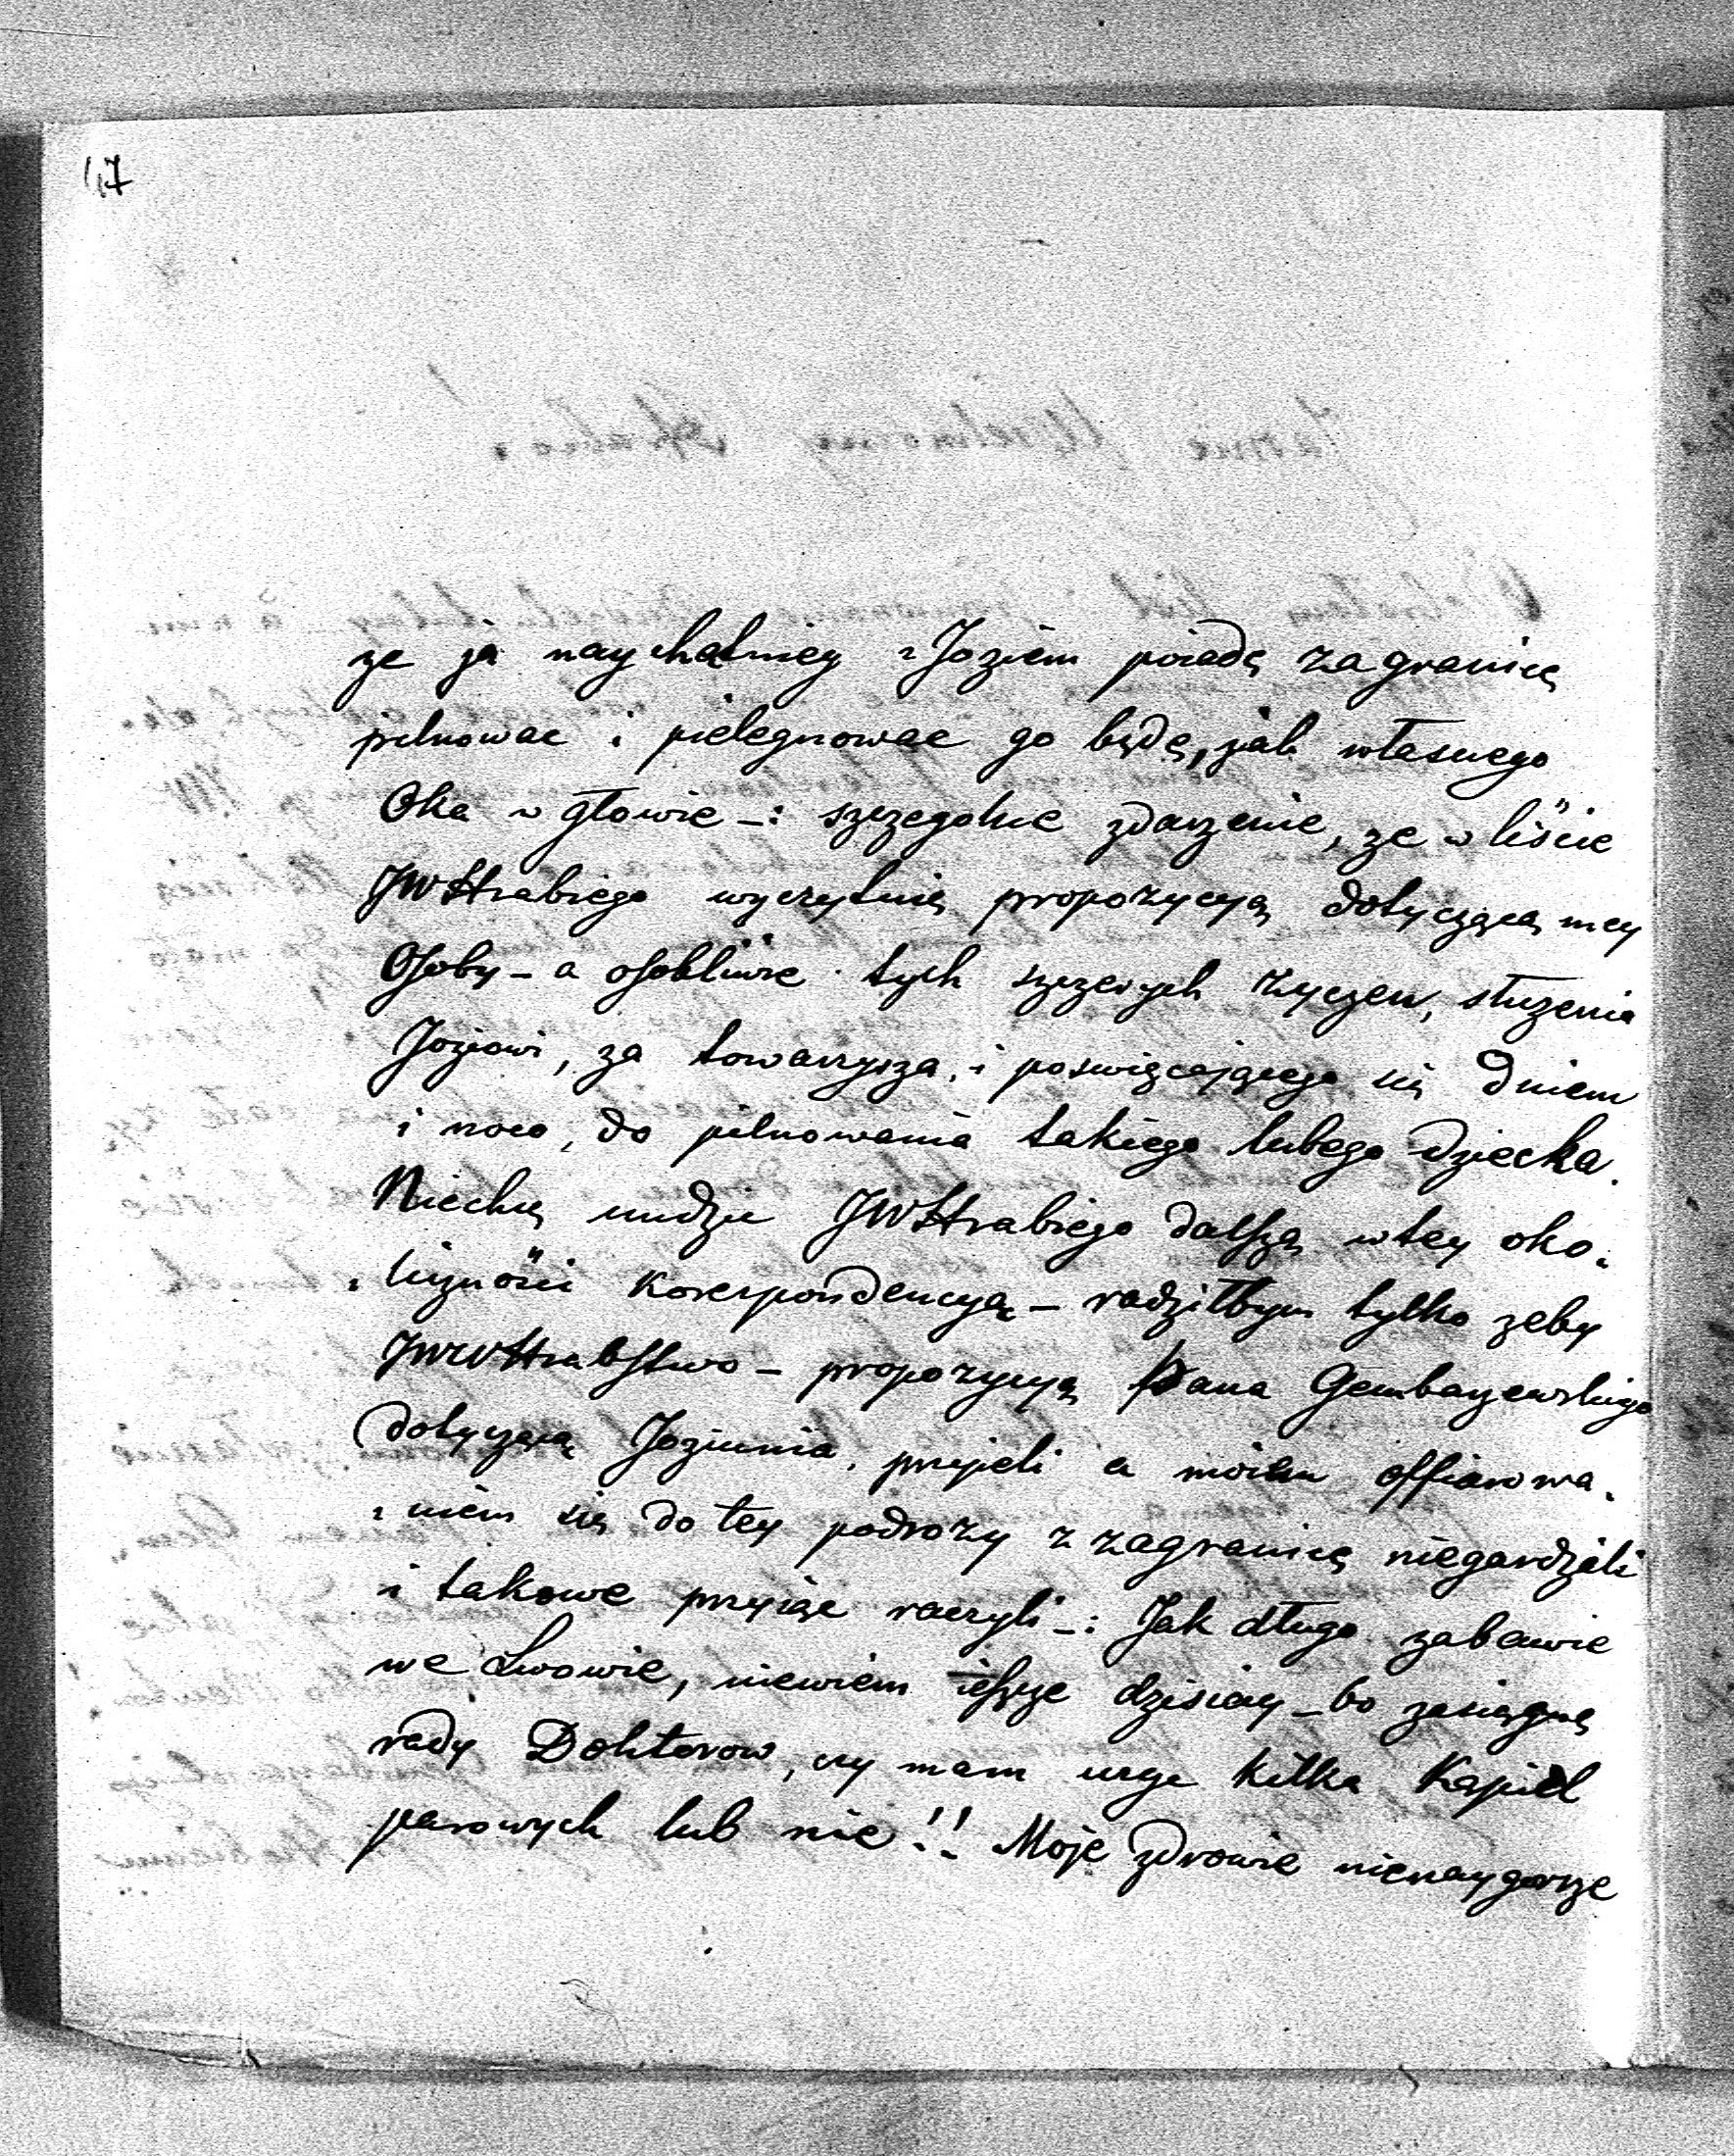 47
ze ja naychętniey z Joziem poiadę zagranicę
pilnowac i pielegnowac go będę, jak własnego
Oka w głowie -: szczegolne zdarzenie, ze w liście
JWHrabiego wyczytuię propozycyą dotyczącą mey
Osoby - a osobliwie tych szczerych zyczen, służenia
Joziowi, za towarzysza, i poswięcającego się dniem
i noco, do pilnowania takiego lubego dziecka.
Niechcę nudzic JWHrabiego dalszą w tey oko-
-liczności Korespondencyą - radziłbym tylko zeby
JWWHrabstwo - propozycyą Pana Gembarzewskiego
dotyczącą Joziunia, przyjeli a moiem offiarowa-
-niem się do tey podrozy z zagranicę niegardzili
i takowe przyiąc raczyli -: Jak długo zabawie
we Lwowie, niewiem ieszcze dzisiay - bo zasięgnę
rady Doktorow, czy mam urzyc kilka Kąpiel
parowych lub nie!! Moje zdrowie nienaygorsze